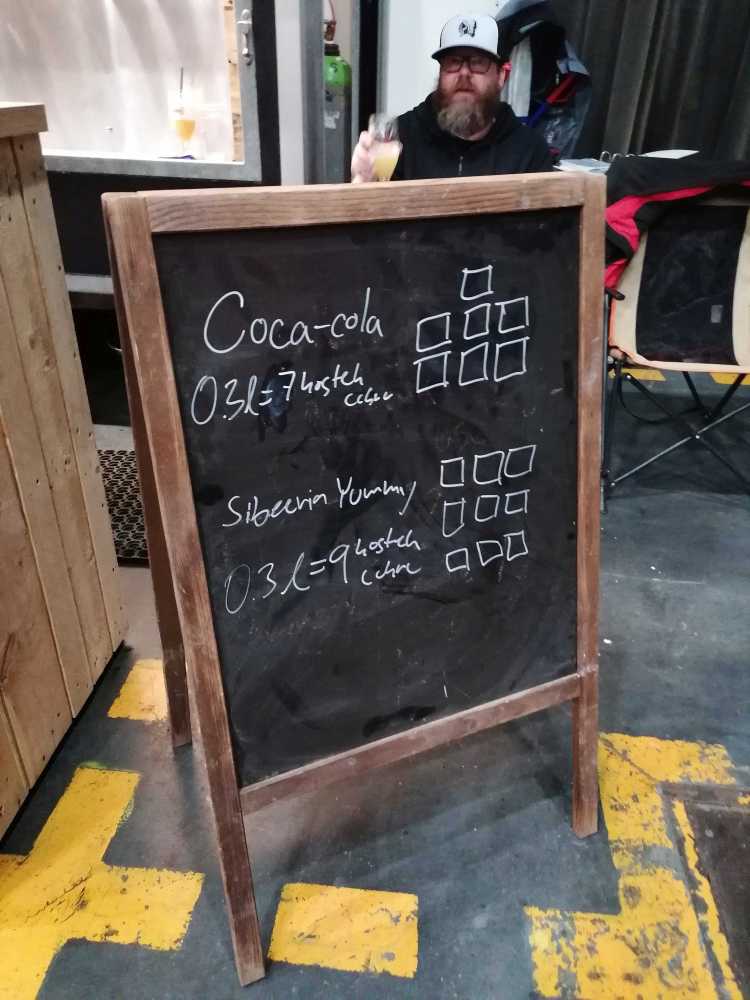 Coca-cola
0.3l=7 kostek
cukru
Sibeeria Yummy
0.3l=9 kostek
cukru